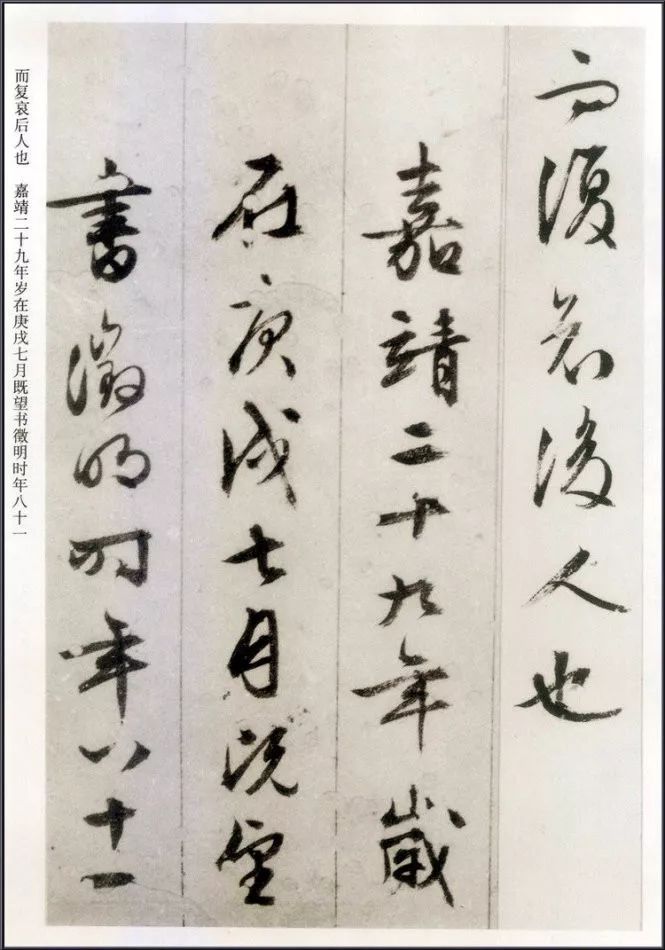 而復哀後人也
嘉靖二十九年歲
在庚戌七月既望
書徵明時年八十一
而复哀后人也 嘉靖二十九年岁在庚戌七月既望书徵明时年八十一